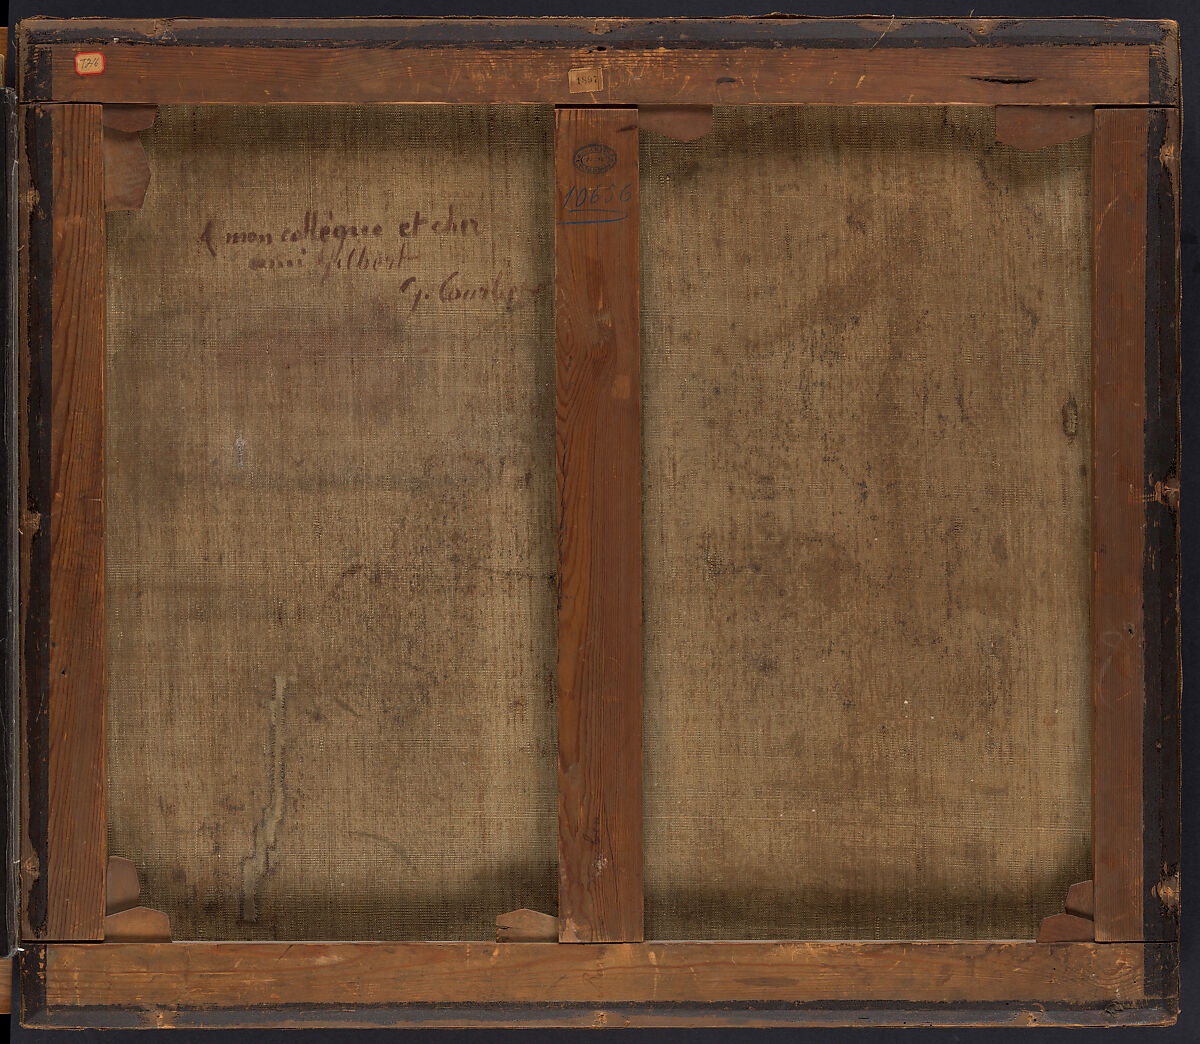 726
1897
10656
A mon collègue et cher
ami Gilbert
G. Courbet